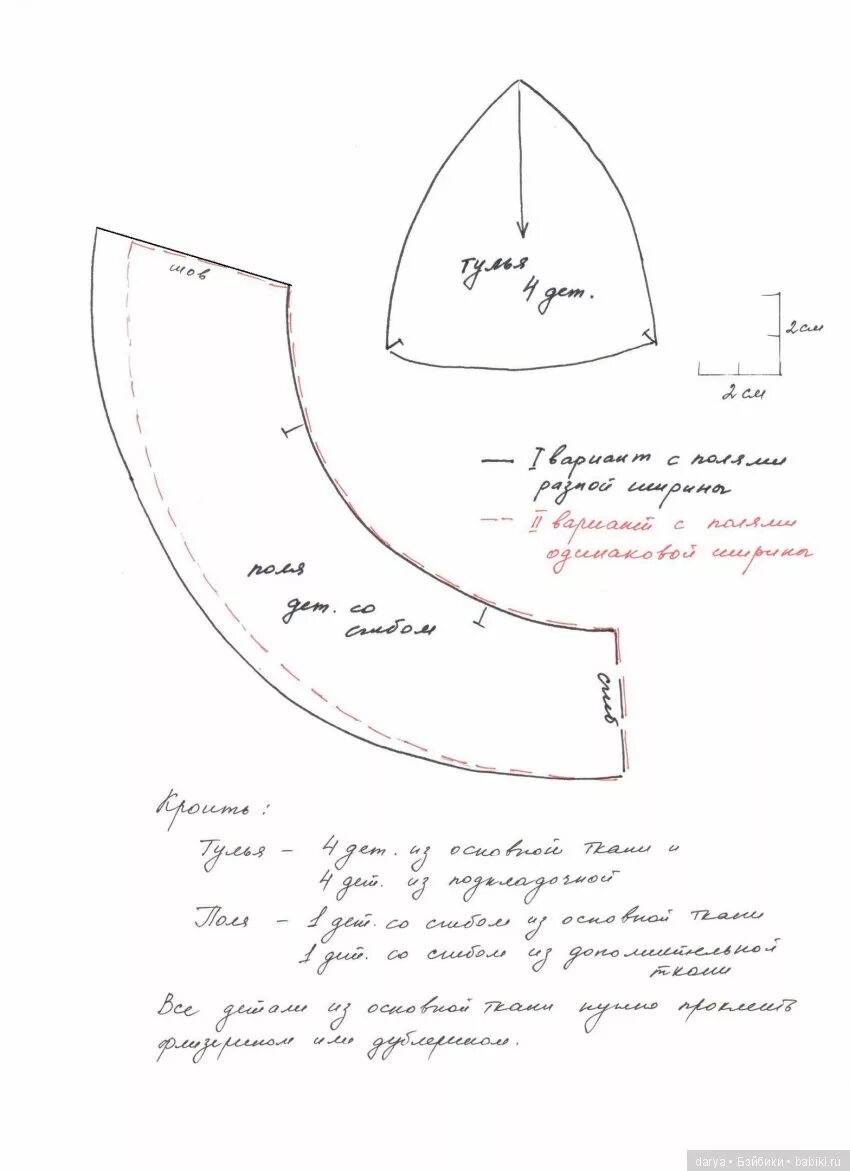 тулья
4 дет.
шов
2 см
2 см
I вариант с полями
разной ширины
II вариант с полями
одинаковой ширины
поля
дет. со
сгибом
сгиб
Кроить:
Тулья - 4 дет. из основной ткани и
4 дет. из подкладочной
Поля - 1 дет. со сгибом из основной ткани
1 дет. со сгибом из дополнительной
ткани
Все детали из основной ткани нужно проклеить
флизелином или дублерином.
darya • Бэйбики • babiki.ru